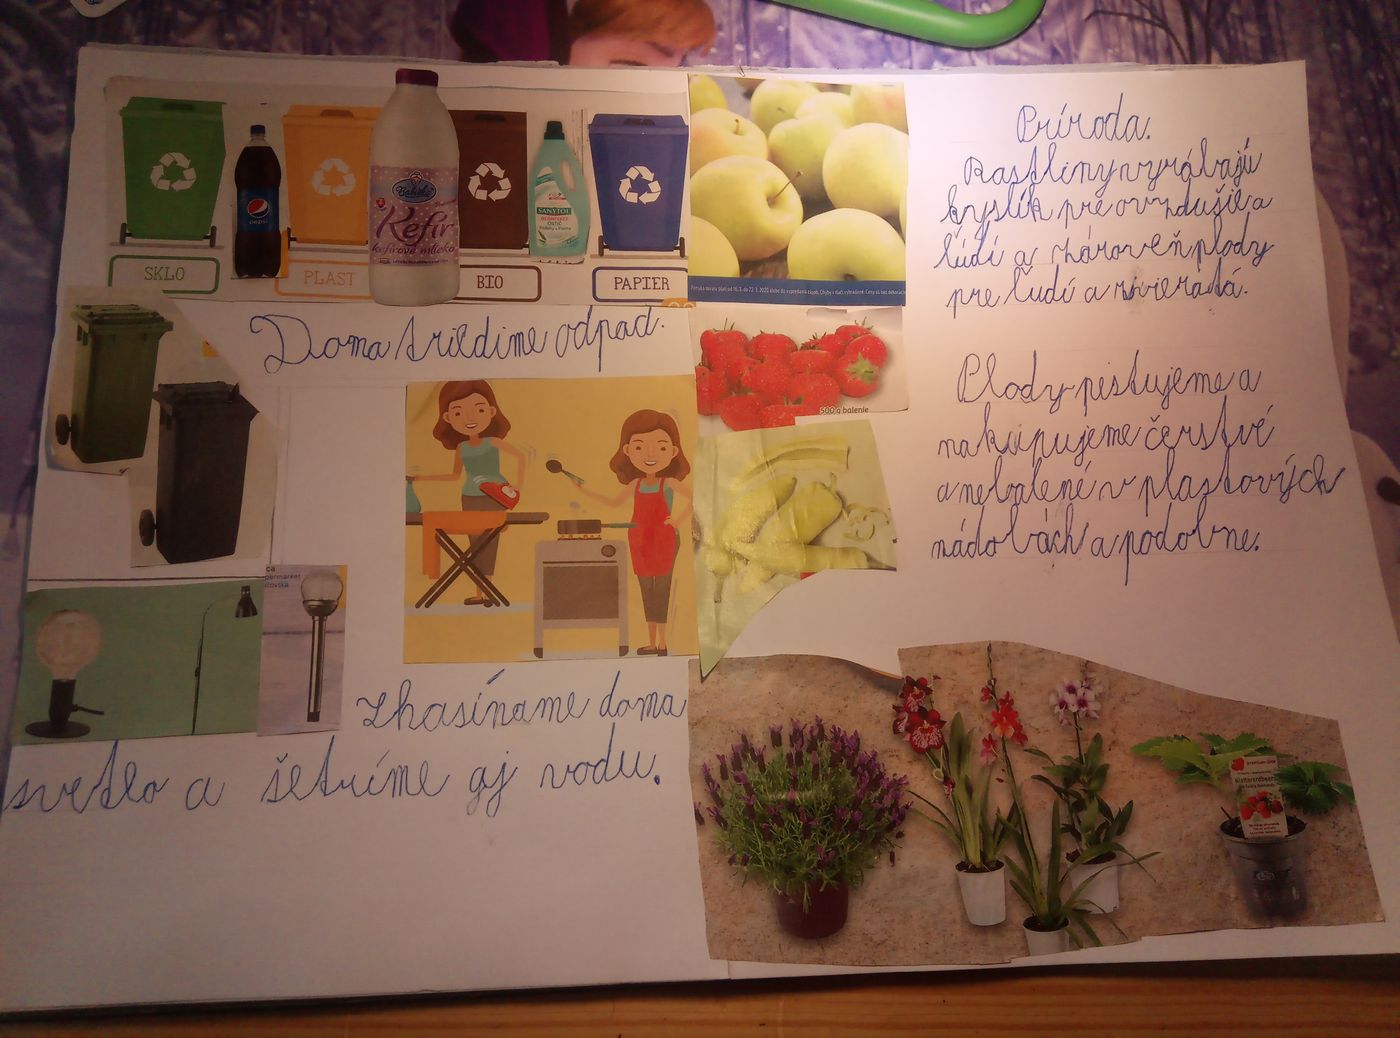 SKLO
PLAST
BIO
PAPIER
pepsi
Kefír
kefírové mlieko
SANYTOL
Doma triedime odpad.
zhasíname doma
svetlo a šetríme aj vodu.
500 g balenie
Príroda.
Rastliny vyrábajú
kyslík pre ovzdušie a
ľúdí a zároveň plody
pre ľudí a zvieratá.
Plody pestujeme a
nakupujeme čerstvé
a nebalené v plastových
nádobách a podobne.
Klettererdbeere